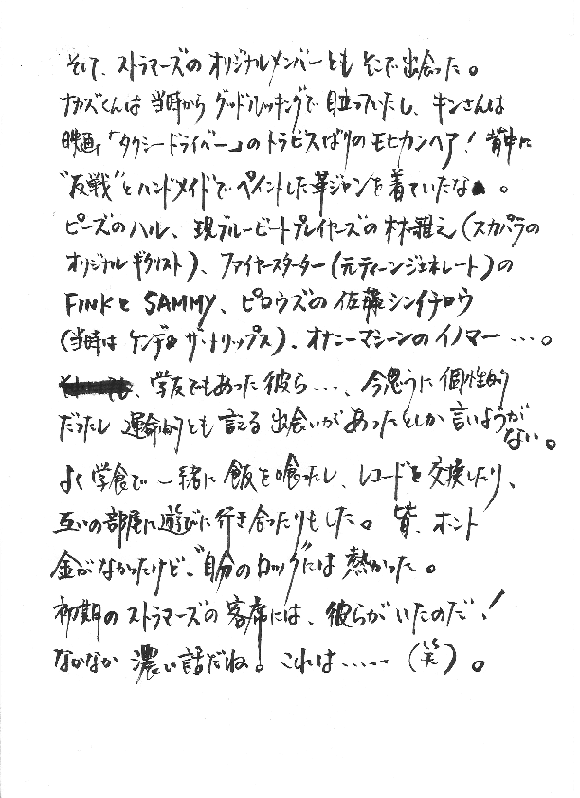 そして、ストラマーズのオリジナルメンバーともそこで出会った。
ナカズくんは当時からグッドルッキングで目立っていたし、キンさんは
映画「タクシードライバー」のトラビスばりのモヒカンヘア！背中に
"反戦"とハンドメイドでペイントした革ジャンを着ていたな。
ピーズのハル、現ブルービートプレイヤーズの林雅之（スカパラの
オリジナルギタリスト）、ファイヤースターター（元ティーンジェネレート）の
FINKとSAMMY、ピロウズの佐藤シンイチロウ
（当時はケンヂ&ザ・トリップス）、オナニーマシーンのイノマー……。
、学友でもあった彼ら……、今思うに個性的
だったし運命的とも言える出会いがあったとしか言いようが
ない。
よく学食で一緒に飯を喰ったし、レコードを交換したり、
互いの部屋に遊びに行き合ったりもした。皆、ホント
金がなかったけど、"自分のロック"には熱かった。
初期のストラマーズの客席には、彼らがいたのだ！
なかなか濃い話だね。これは……（笑）。